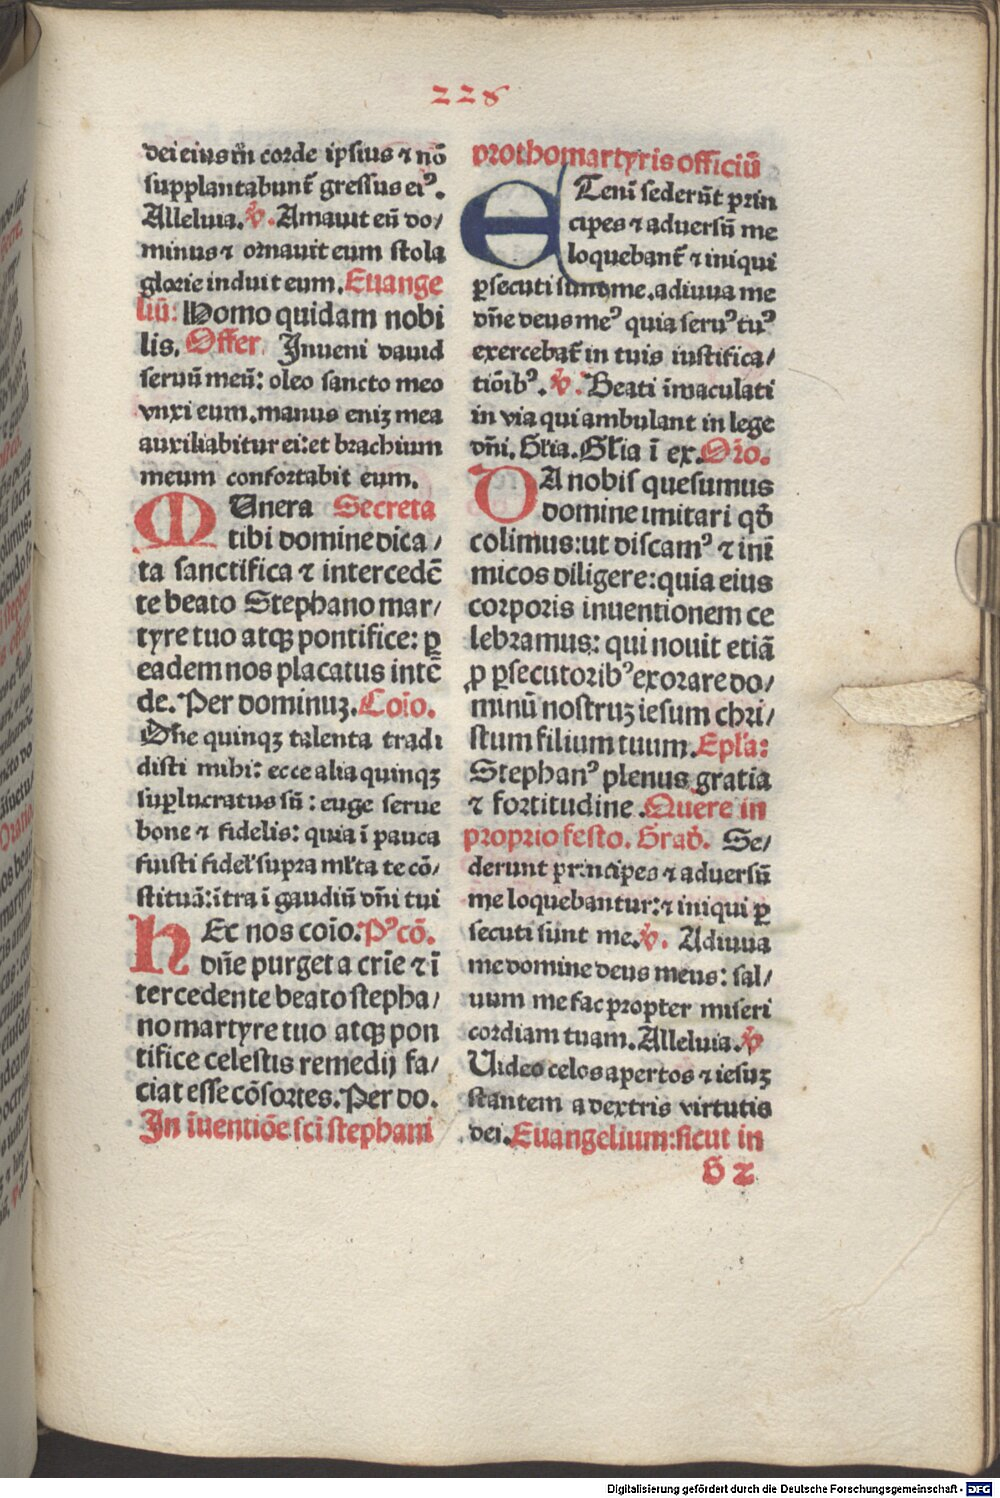 228
dei eius in̄ corde ipsius ⁊ nō
supplantabunt̄ gressus eiꝰ.
Alleluia. ℣. Amauit eū do/
minus ⁊ ornauit eum stola
glorie induit eum. Euange
liū: Homo quidam nobi
lis. Offer. Inueni dauid
seruū meū: oleo sancto meo
vnxi eum. manus eniꝫ mea
auxiliabitur ei: et brachium
meum confortabit eum.
MUnera Secreta
tibi domine dica/
ta sanctifica ⁊ intercedē
te beato Stephano mar/
tyre tuo atqꝫ pontifice: ꝑ
eadem nos placatus intē
de. Per dominuꝫ. Coīo.
Dn̄e quinqꝫ talenta tradi
disti mihi: ecce alia quinqꝫ
suꝑlucratus sū: euge serue
bone ⁊ fidelis: quia ī pauca
fuisti fidel̄ supra ml̄ta te cō/
stituā: ītra ī gaudiū dn̄i tui
HEc nos coīo. Pꝰcō.
dn̄e purget a crīe ⁊ ī
tercedente beato stepha/
no martyre tuo atqꝫ pon
tifice celestis remedij fa/
ciat esse cōsortes. Per do.
In īuentiōe sci stephani
prothomartyris officiū
ETeni sederūt prin
cipes ⁊ aduersū me
loquebant̄ ⁊ iniqui
ꝑsecuti sunt me. adiuua me
dn̄e deus meꝰ quia seruꝰ tuꝰ
exercebat̄ in tuis iustifica/
tiōibꝰ. ℣. Beati īmaculati
in via qui ambulant in lege
dn̄i. Gl̄ia. Gl̄ia ī ex. Oro.
DA nobis quesumus
domine imitari qd̄
colimus: ut discamꝰ ⁊ ini
micos diligere: quia eius
corporis inuentionem ce
lebramus: qui nouit etiā
ꝓ ꝑsecutoribꝰ exorare do/
minū nostruꝫ iesum chri/
stum filium tuum. Epl̄a:
Stephanꝰ plenus gratia
⁊ fortitudine. Quere in
proprio festo. Grad̄. Se/
derunt principes ⁊ aduersū
me loquebantur: ⁊ iniqui ꝑ
secuti sunt me. ℣. Adiuua
me domine deus meus: sal/
uum me fac propter miseri
cordiam tuam. Alleluia. ℣
Uideo celos apertos ⁊ iesuꝫ
stantem a dextris virtutis
dei. Euangelium: sicut in
G 2
Digitalisierung gefördert durch die Deutsche Forschungsgemeinschaft - DFG